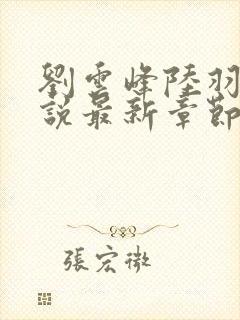 劉雲峰陸羽
說最新章節
張宏微